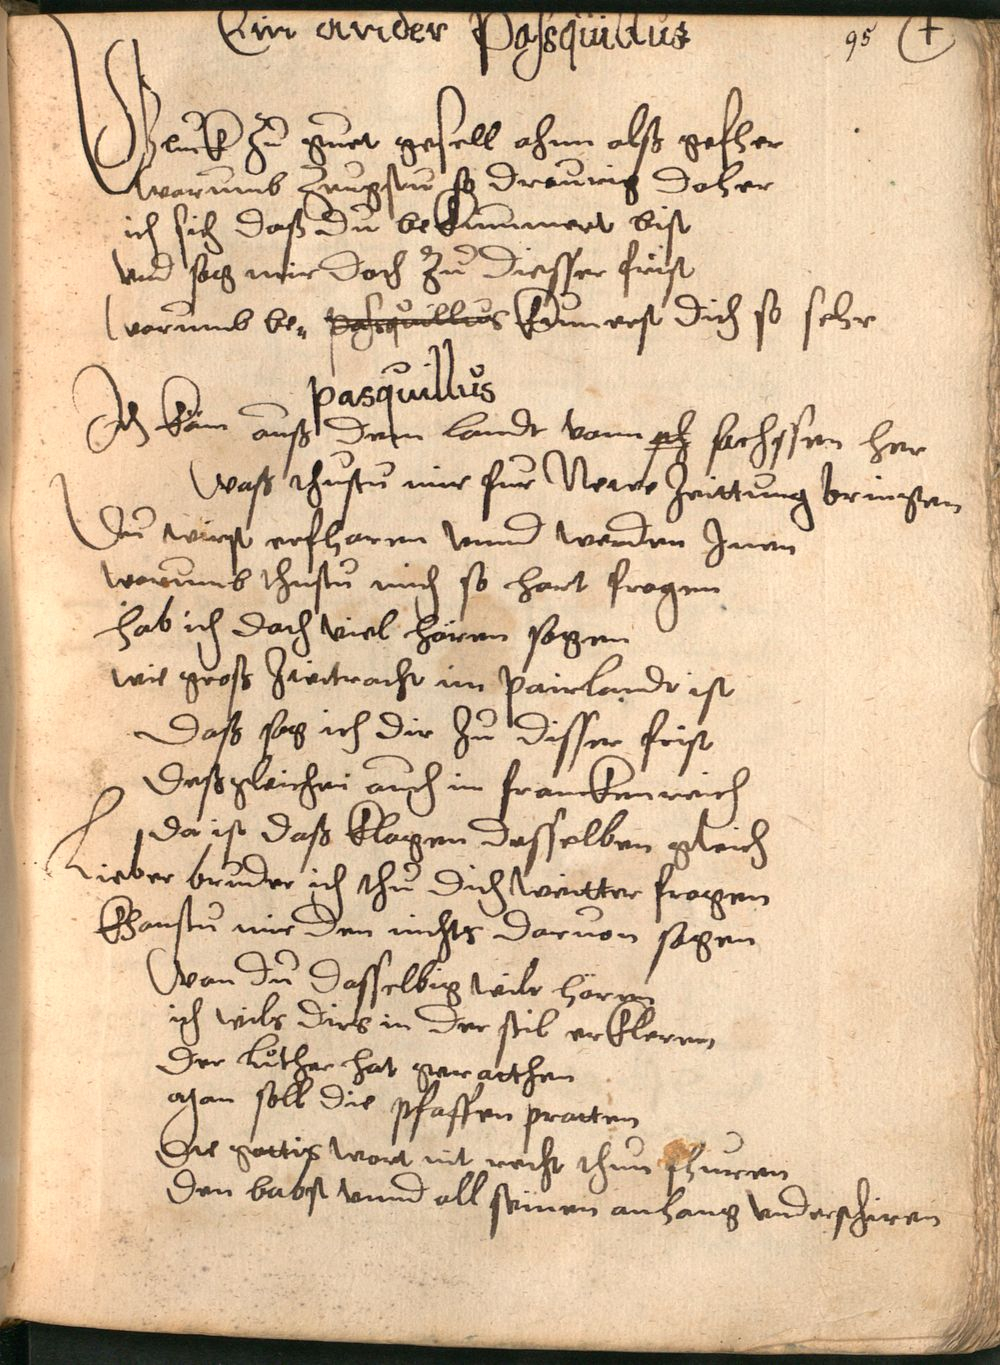 Ein ander Pasquillus
95
Gluck zu guet gesell ohnn alß gefher
warumb zeugstu so draurig doher
ich sich daß du bekummert bist
vnd sag mir doch zu diesser frist
warumb be„ pasquillus kumerst dich so sehr
pasquillus
Ich kam auß dem landt vonn sachssen her
Waß thustu mir fur Newe Zeittung bringen
Du wirst erfharen vnnd werden Jnen
warumb thustu mich so hart fragen
hab ich doch viel hören sagen
wie groß Zwitracht im pairlandt ist
Daß sag ich dir zu disser frist
Deßgleichen auch in franckenreich
da ist daß klagen desselben gleich
Lieber bruder ich thu dich weitter fragen
Khanstu mir den nichts daruon sagen
Wan du dasselbig wilt hören
ich wils dirs in der stil erkleren
Der Luther hat gerathen
Man soll die pfaffen praten
Die gottis wort nit recht thun fhuren
Den babst vnnd all seinen anhang vnderschiren